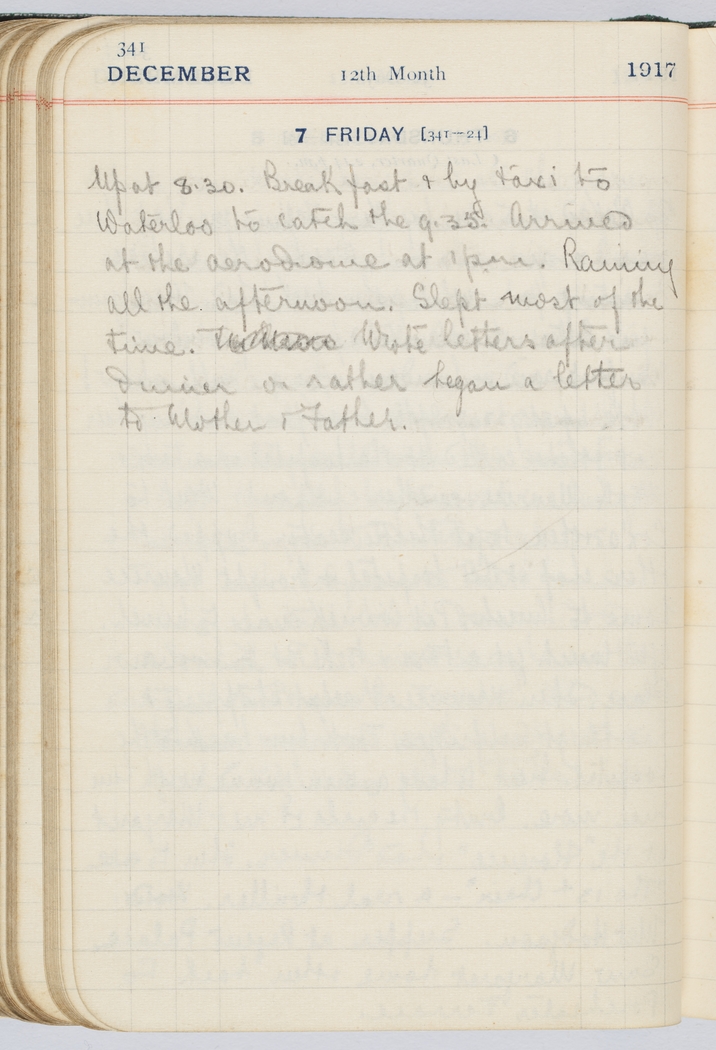 341
DECEMBER 12th Month 1917
7 FRIDAY [341—24]
Up at 8.30. Breakfast & by taxi to
Waterloo to catch the 9.35. Arrived
at the aerodrome at 1 pm. Raining
all the afternoon. Slept most of the
time. Wrote letters after
dinner or rather began a letter
to Mother & Father.